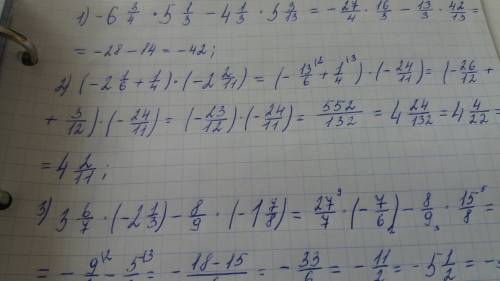 1) -6 3/4 · 5 1/3 - 4 1/3 · 3 3/13 = -27/4 · 16/3 - 13/3 · 42/13 =
= -28 - 14 = -42;
2) (-2 1/6 + 1/4) · (-2 2/11) = (-13/6 \2 + 1/4 \3) · (-24/11) = (-26/12 +
+ 3/12) · (-24/11) = (-23/12) · (-24/11) = 552/132 = 4 24/132 = 4 4/22 =
= 4 2/11;
3) 3 6/7 · (-2 1/3) - 8/9 · (-1 7/8) = 27/7 9 · (-7/6 2) - 8/9 3 · 15/8 5 =
= -9/2 \2 - 5/3 \3 = -18-15/ = -33/6 = -11/2 = -5 1/2 =